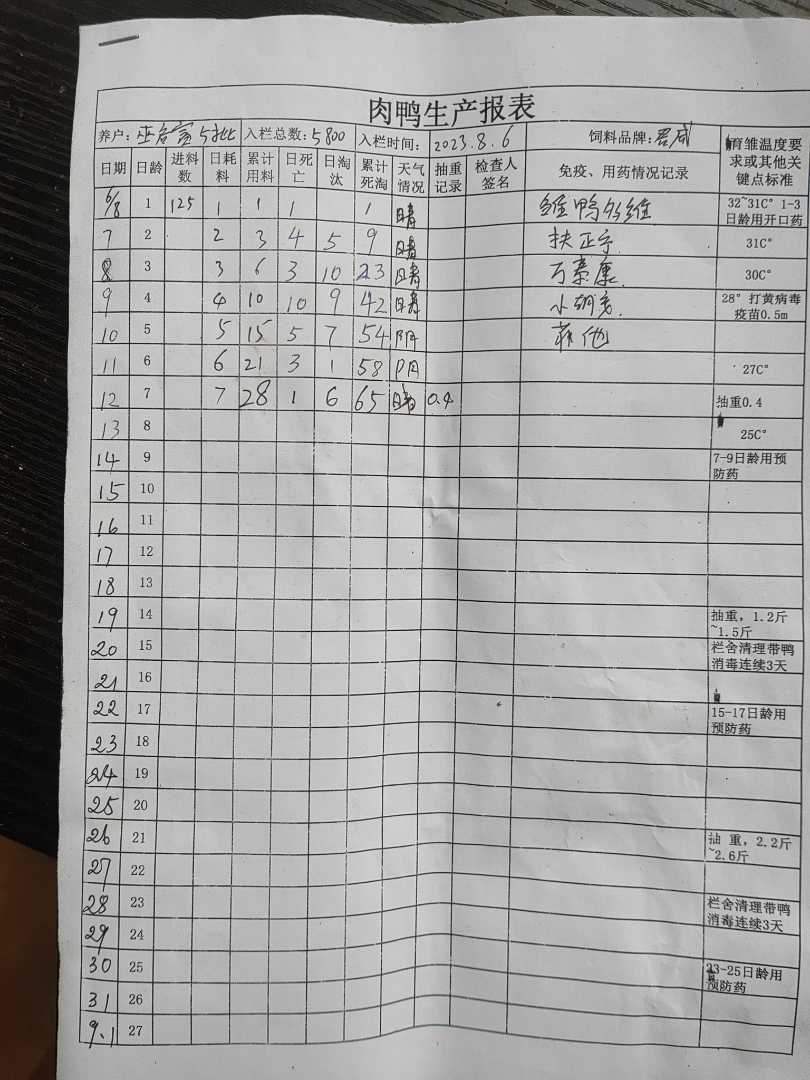 肉鸭生产报表
养户: 巫启富 5批 入栏总数: 5800 入栏时间: 2023.8.6 饲料品牌: 君威 育雏温度要求或其他关键点标准
日期 日龄 进料数 日耗料 累计用料 日死亡 日淘汰 累计死淘 天气情况 抽重记录 检查人签名 免疫、用药情况记录
6/8 1 125 1 1 1 1 晴 雏鸭多维 32~31C° 1-3日龄用开口药
7 2 2 3 4 5 9 晴 扶正 31C°
8 3 3 6 3 10 23 晴 万泰康 30C°
9 4 4 10 10 9 42 晴 28° 打黄病毒疫苗0.5m
10 5 5 15 5 7 54 阴
11 6 6 21 3 1 58 阴 27C°
12 7 7 28 1 6 65 晴 0.4 抽重0.4
13 8 25C°
14 9 7-9日龄用预防药
15 10
16 11
17 12
18 13
19 14 抽重，1.2斤~1.5斤
20 15 栏舍清理带鸭消毒连续3天
21 16
22 17 15-17日龄用预防药
23 18
24 19
25 20
26 21 抽 重，2.2斤~2.6斤
27 22
28 23 栏舍清理带鸭消毒连续3天
29 24
30 25 23-25日龄用预防药
31 26
9.1 27